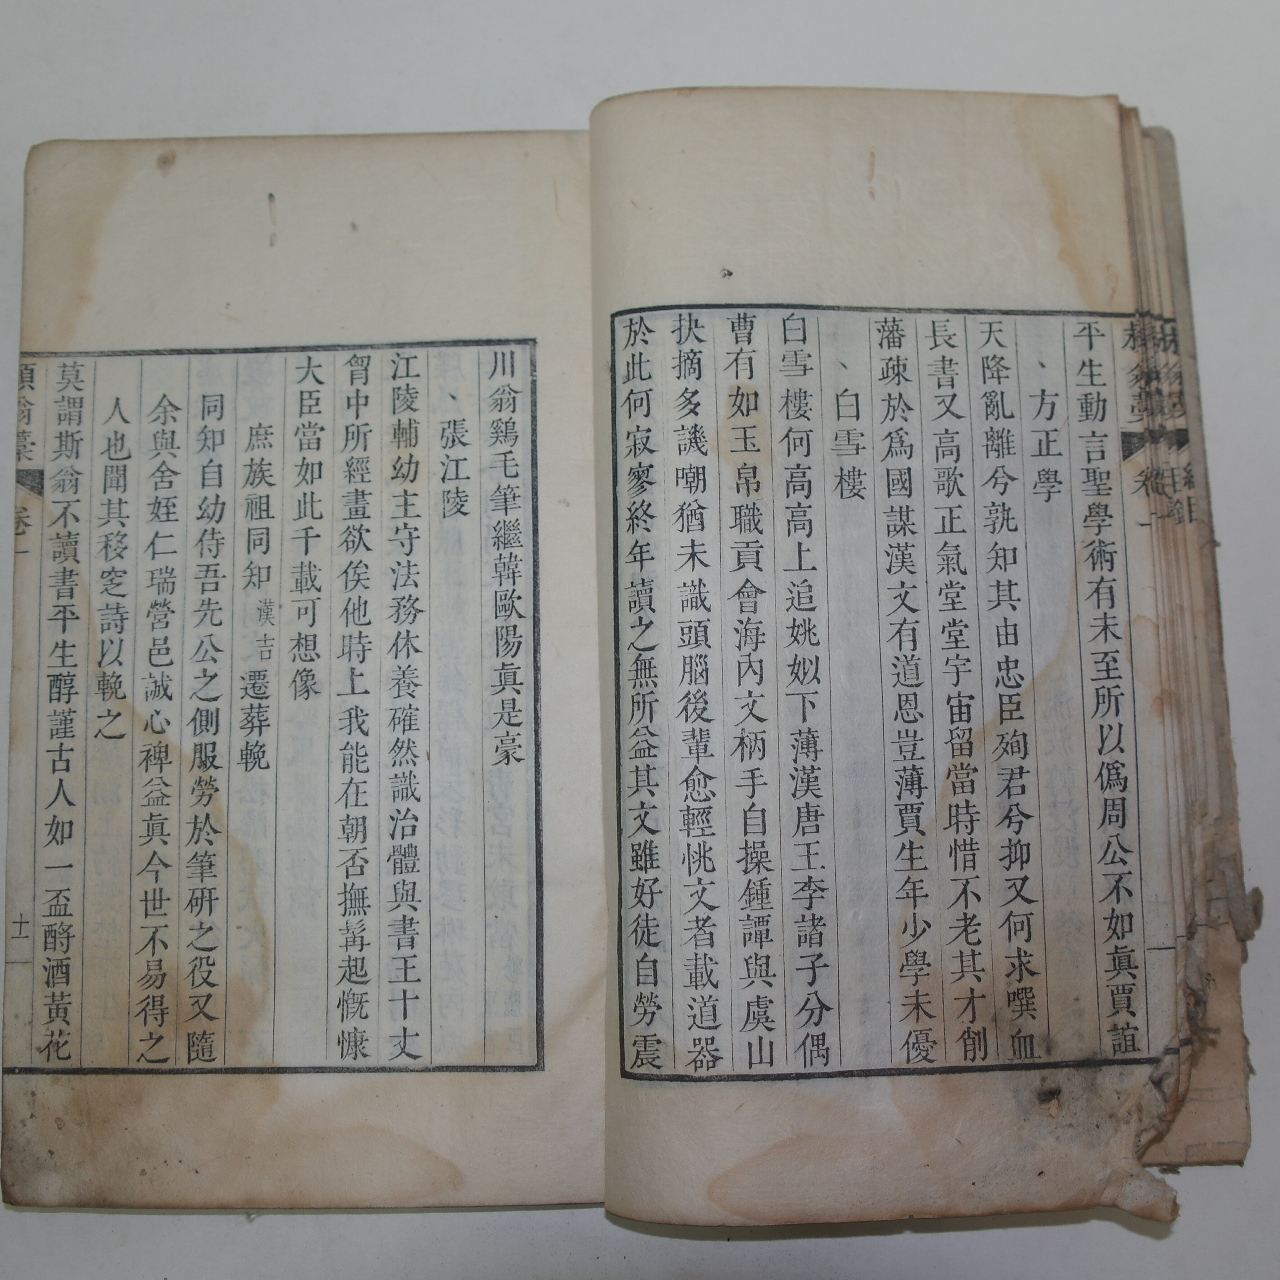 平生動言聖學術有未至所以僞周公不如眞賈誼
、方正學
天降亂離兮孰知其由忠臣殉君兮抑又何求噀血
長書又高歌正氣堂堂宇宙留當時惜不老其才削
藩疎於爲國謀漢文有道恩豈薄賈生年少學未優
、白雪樓
白雪樓何高高上追姚姒下薄漢唐王李諸子分偶
曹有如玉帛職貢會海內文柄手自操鍾譚與虞山
抉摘多譏嘲猶未識頭腦後輩愈輕恌文者載道器
於此何寂寥終年讀之無所益其文雖好徒自勞震
川翁鷄毛筆繼韓歐陽眞是豪
、張江陵
江陵輔幼主守法務休養確然識治體與書王十丈
胷中所經畫欲俟他時上我能在朝否撫髯起慨慷
大臣當如此千載可想像
庶族祖同知漢吉遷葬輓
同知自幼侍吾先公之側服勞於筆硏之役又隨
余與舍姪仁瑞營邑誠心裨益眞今世不易得之
人也聞其移窆詩以輓之
莫謂斯翁不讀書平生醇謹古人如一盃酹酒黃花
翁藁 卷一 十一